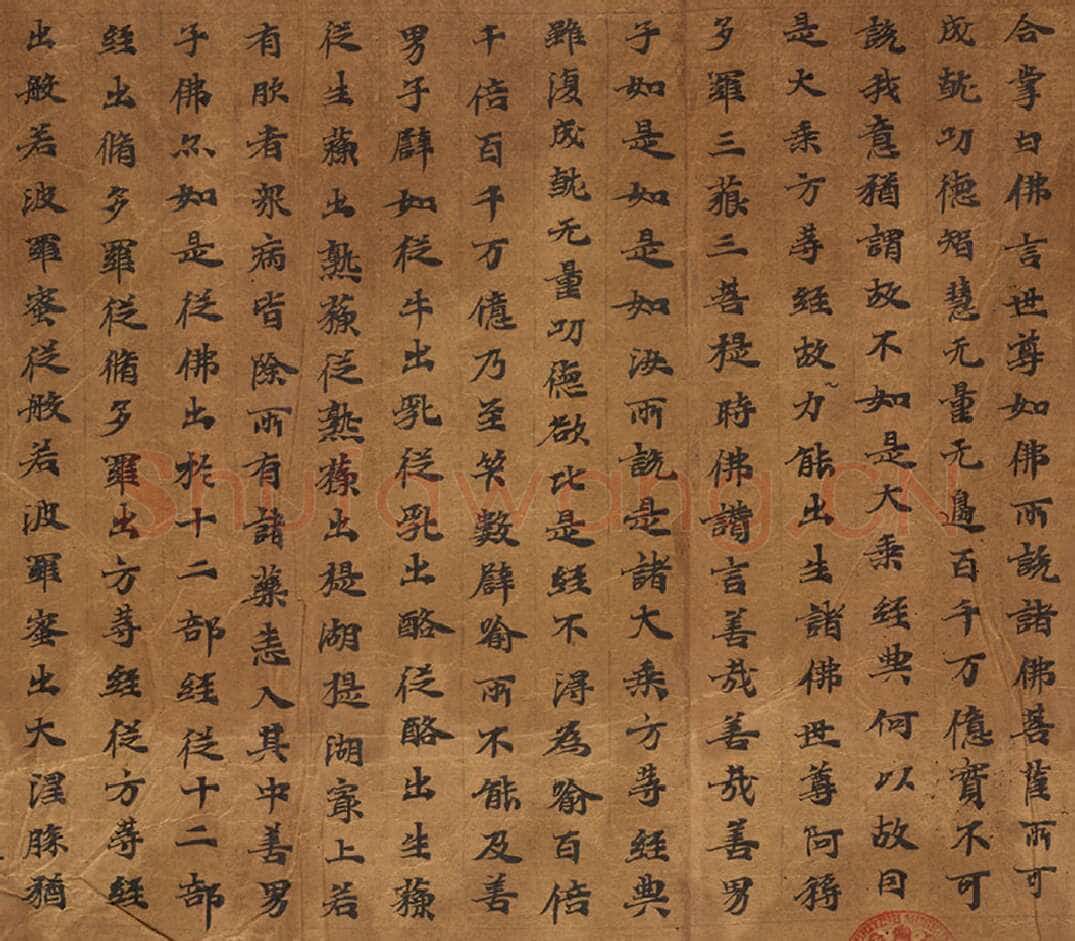 合掌白佛言世尊如佛所說諸佛菩薩所可
成就功德智慧无量无邊百千万億實不可
說我意猶謂故不如是大乘經典何以故因
是大乘方等經故力能出生諸佛世尊阿耨
多羅三藐三菩提時佛讚言善哉善哉善男
子如是如是如汝所說是諸大乘方等經典
雖復成就无量功德欲比是經不得為喻百倍
千倍百千万億乃至筭數辟喻所不能及善
男子辟如從牛出乳從乳出酪從酪出生蘇
從生蘇出熟蘇從熟蘇出提湖提湖冣上若
有服者衆病皆除所有諸藥悉入其中善男
子佛亦如是從佛出於十二部經從十二部
經出脩多羅從脩多羅出方等經從方等經
出般若波羅蜜從般若波羅蜜出大涅槃猶
Shufawang.CN